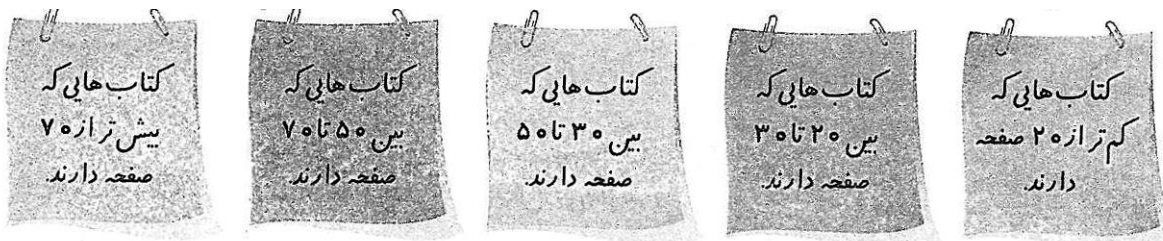 کتاب‌هایی که
کم‌تر از ۲۰ صفحه
دارند.
کتاب‌هایی که
بین ۲۰ تا ۳۰
صفحه دارند.
کتاب‌هایی که
بین ۳۰ تا ۵۰
صفحه دارند.
کتاب‌هایی که
بین ۵۰ تا ۷۰
صفحه دارند.
کتاب‌هایی که
بیش‌تر از ۷۰
صفحه دارند.